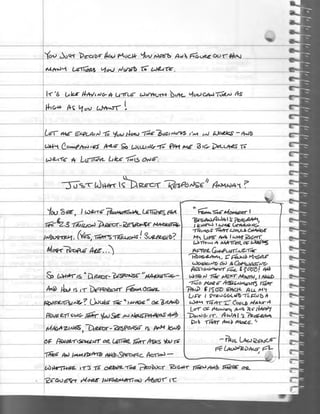 You Just Decide How Much You Need And Figure Out How
Many Letters You Need To Write.
It's Like Having A Little Wealth Dial You Can Turn As
High As You Want!
Let Me Explain To You How The Business I'm In Works - And
Why Companies Are So Willing To Pay Me Big Dollars To
Write A Letter Like This One.
"Just What Is "Direct Response" Anyway?
You See, I Write Promotional Letters For
The $2.3 Trillion Direct-Response Marketing
Industry. (Yes, That's Trillion! Surprised?
Most People Are...)
So What Is "Direct-Response" Marketing -
And How Is It Different From Other
Advertising? Unlike The "Image" Or Brand
Advertising That You See In Newspapers And
Magazines, "Direct-Response" Is Any Kind
Of Advertisement Or Letter That Asks You To
Take An Immediate And Specific Action -
Whether It's To Order The Product Right Then And There Or
Request More Information About It.
"From The Moment I
Began AWAI's Program,
I Knew I Was Learning
Things That Could Change
My Life And I Was Right.
Within A Matter Of Weeks
After Completing The
Program, I Found Myself
Working On A Copywriting
Assignment For $1500! And
When In The Next Month, I Had
Two More Assignments That
Paid $1500 Each. All My
Life I Struggled To Find A
Way That I Could Make A
Lot Of Money And Be Happy
Doing It. AWAI's Program
Did That And More."
- Paul Lawrence
Ft Lauderdale FL